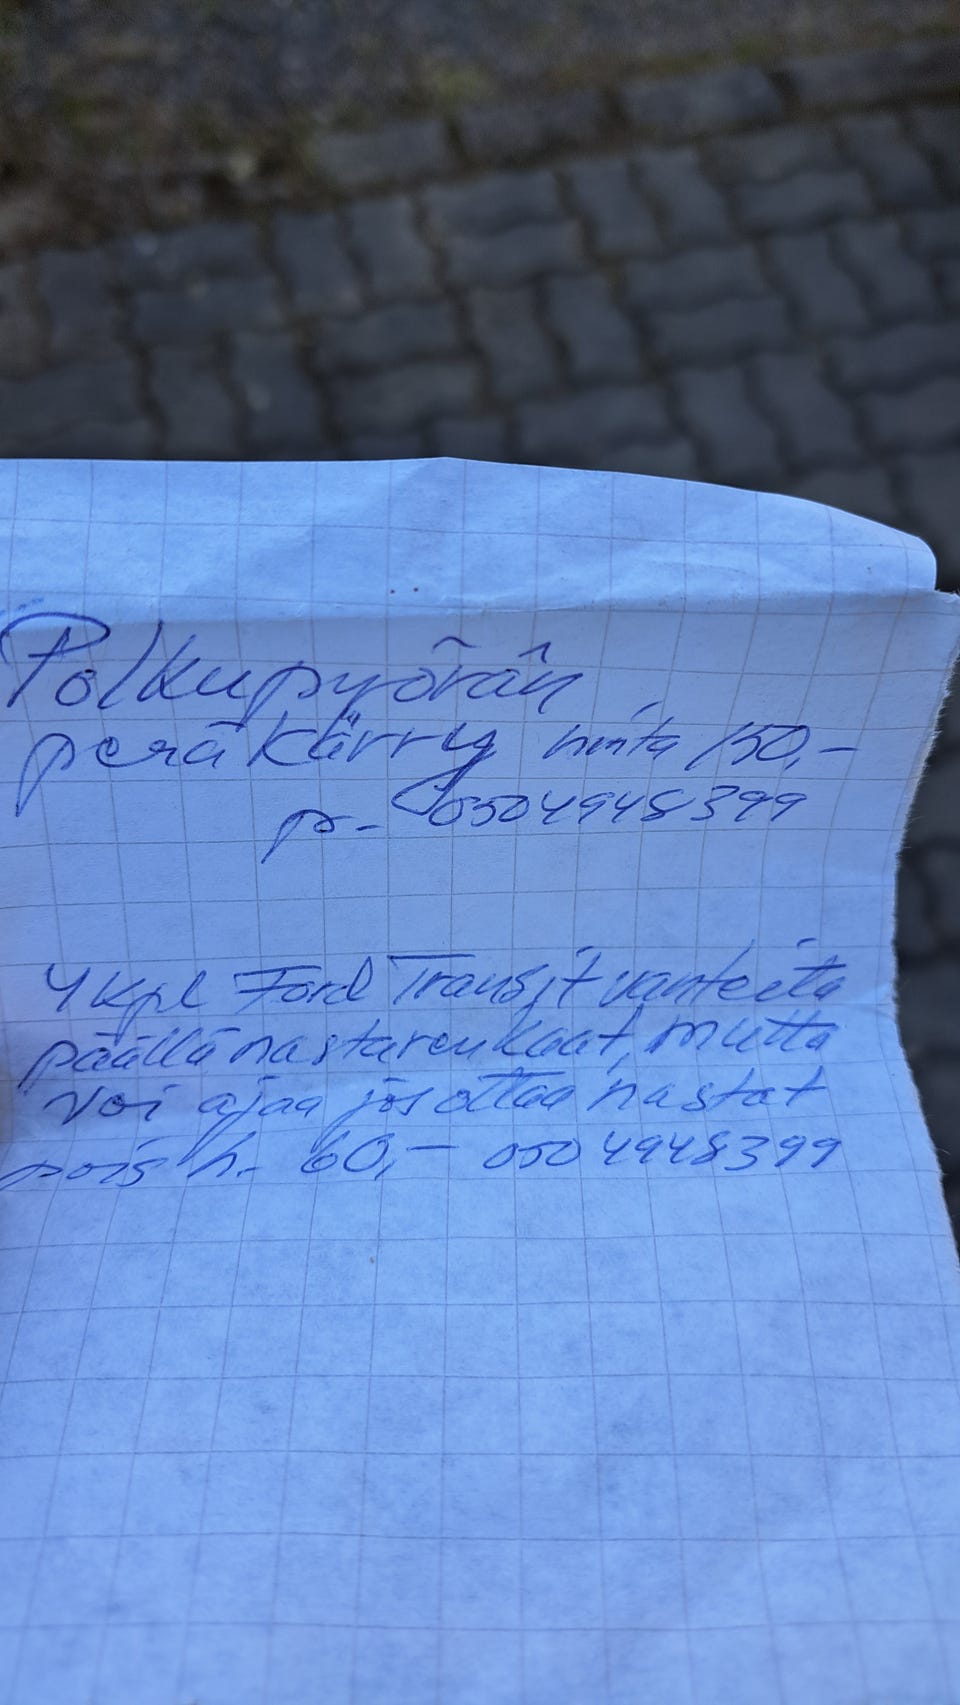 Polkupyörän
peräkärry hinta 150,-
p- 0504948399
4 kpl Ford Transit vanteita
päällä nastarenkaat, mutta
voi ajaa jos ottaa nastat
pois h. 60,- 050 4948399